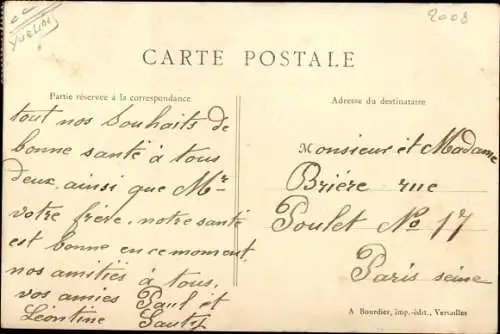 Yvelines
2008
CARTE POSTALE
Partie réservée à la correspondance
Adresse du destinataire
tout nos Souhaits de
bonne santé à tous
deux, ainsi que Mr
votre frère, notre santé
est bonne en ce moment,
nos amitiés à tous,
vos amies Paul et
Léontine
Monsieur et Madame
Brière rue
Poulet No 17
Paris seine
A Bourdier, imp.-édit., Versailles